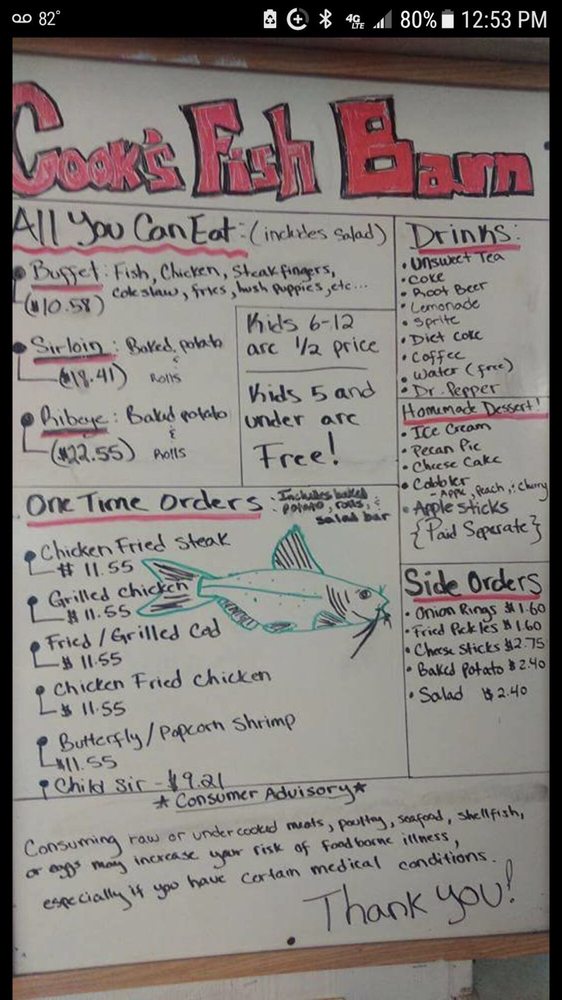 82°
4G
LTE
80%
12:53 PM
Cook's Fish Barn
All You Can Eat: (includes salad)
Buffet: Fish, Chicken, Steakfingers,
($10.58) coleslaw, fries, hush puppies, etc...
Sirloin: Baked potato
&
($18.41) Rolls
Ribeye: Baked potato
&
($22.55) Rolls
Kids 6-12
are 1/2 price
Kids 5 and
under are
Free!
One Time Orders : Includes baked
potato, rolls, &
salad bar
Chicken Fried Steak
$ 11.55
Grilled Chicken
$ 11.55
Fried/Grilled Cod
$ 11.55
Chicken Fried Chicken
$ 11.55
Butterfly/Popcorn Shrimp
$11.55
Child Sir - $9.21
Drinks:
• Unsweet Tea
• Coke
• Root Beer
• Lemonade
• Sprite
• Diet Coke
• Coffee
• Water (free)
• Dr. Pepper
Homemade Dessert!
• Ice Cream
• Pecan Pie
• Cheese Cake
• Cobbler
- Apple, Peach, & Cherry
• Apple sticks
{Paid Seperate}
Side Orders
• Onion Rings $1.60
• Fried Pickles $1.60
• Cheese Sticks $2.75
• Baked Potato $2.40
• Salad $2.40
*Consumer Advisory*
Consuming raw or undercooked meats, poultry, seafood, shellfish,
or eggs may increase your risk of foodborne illness,
especially if you have certain medical conditions.
Thank you!